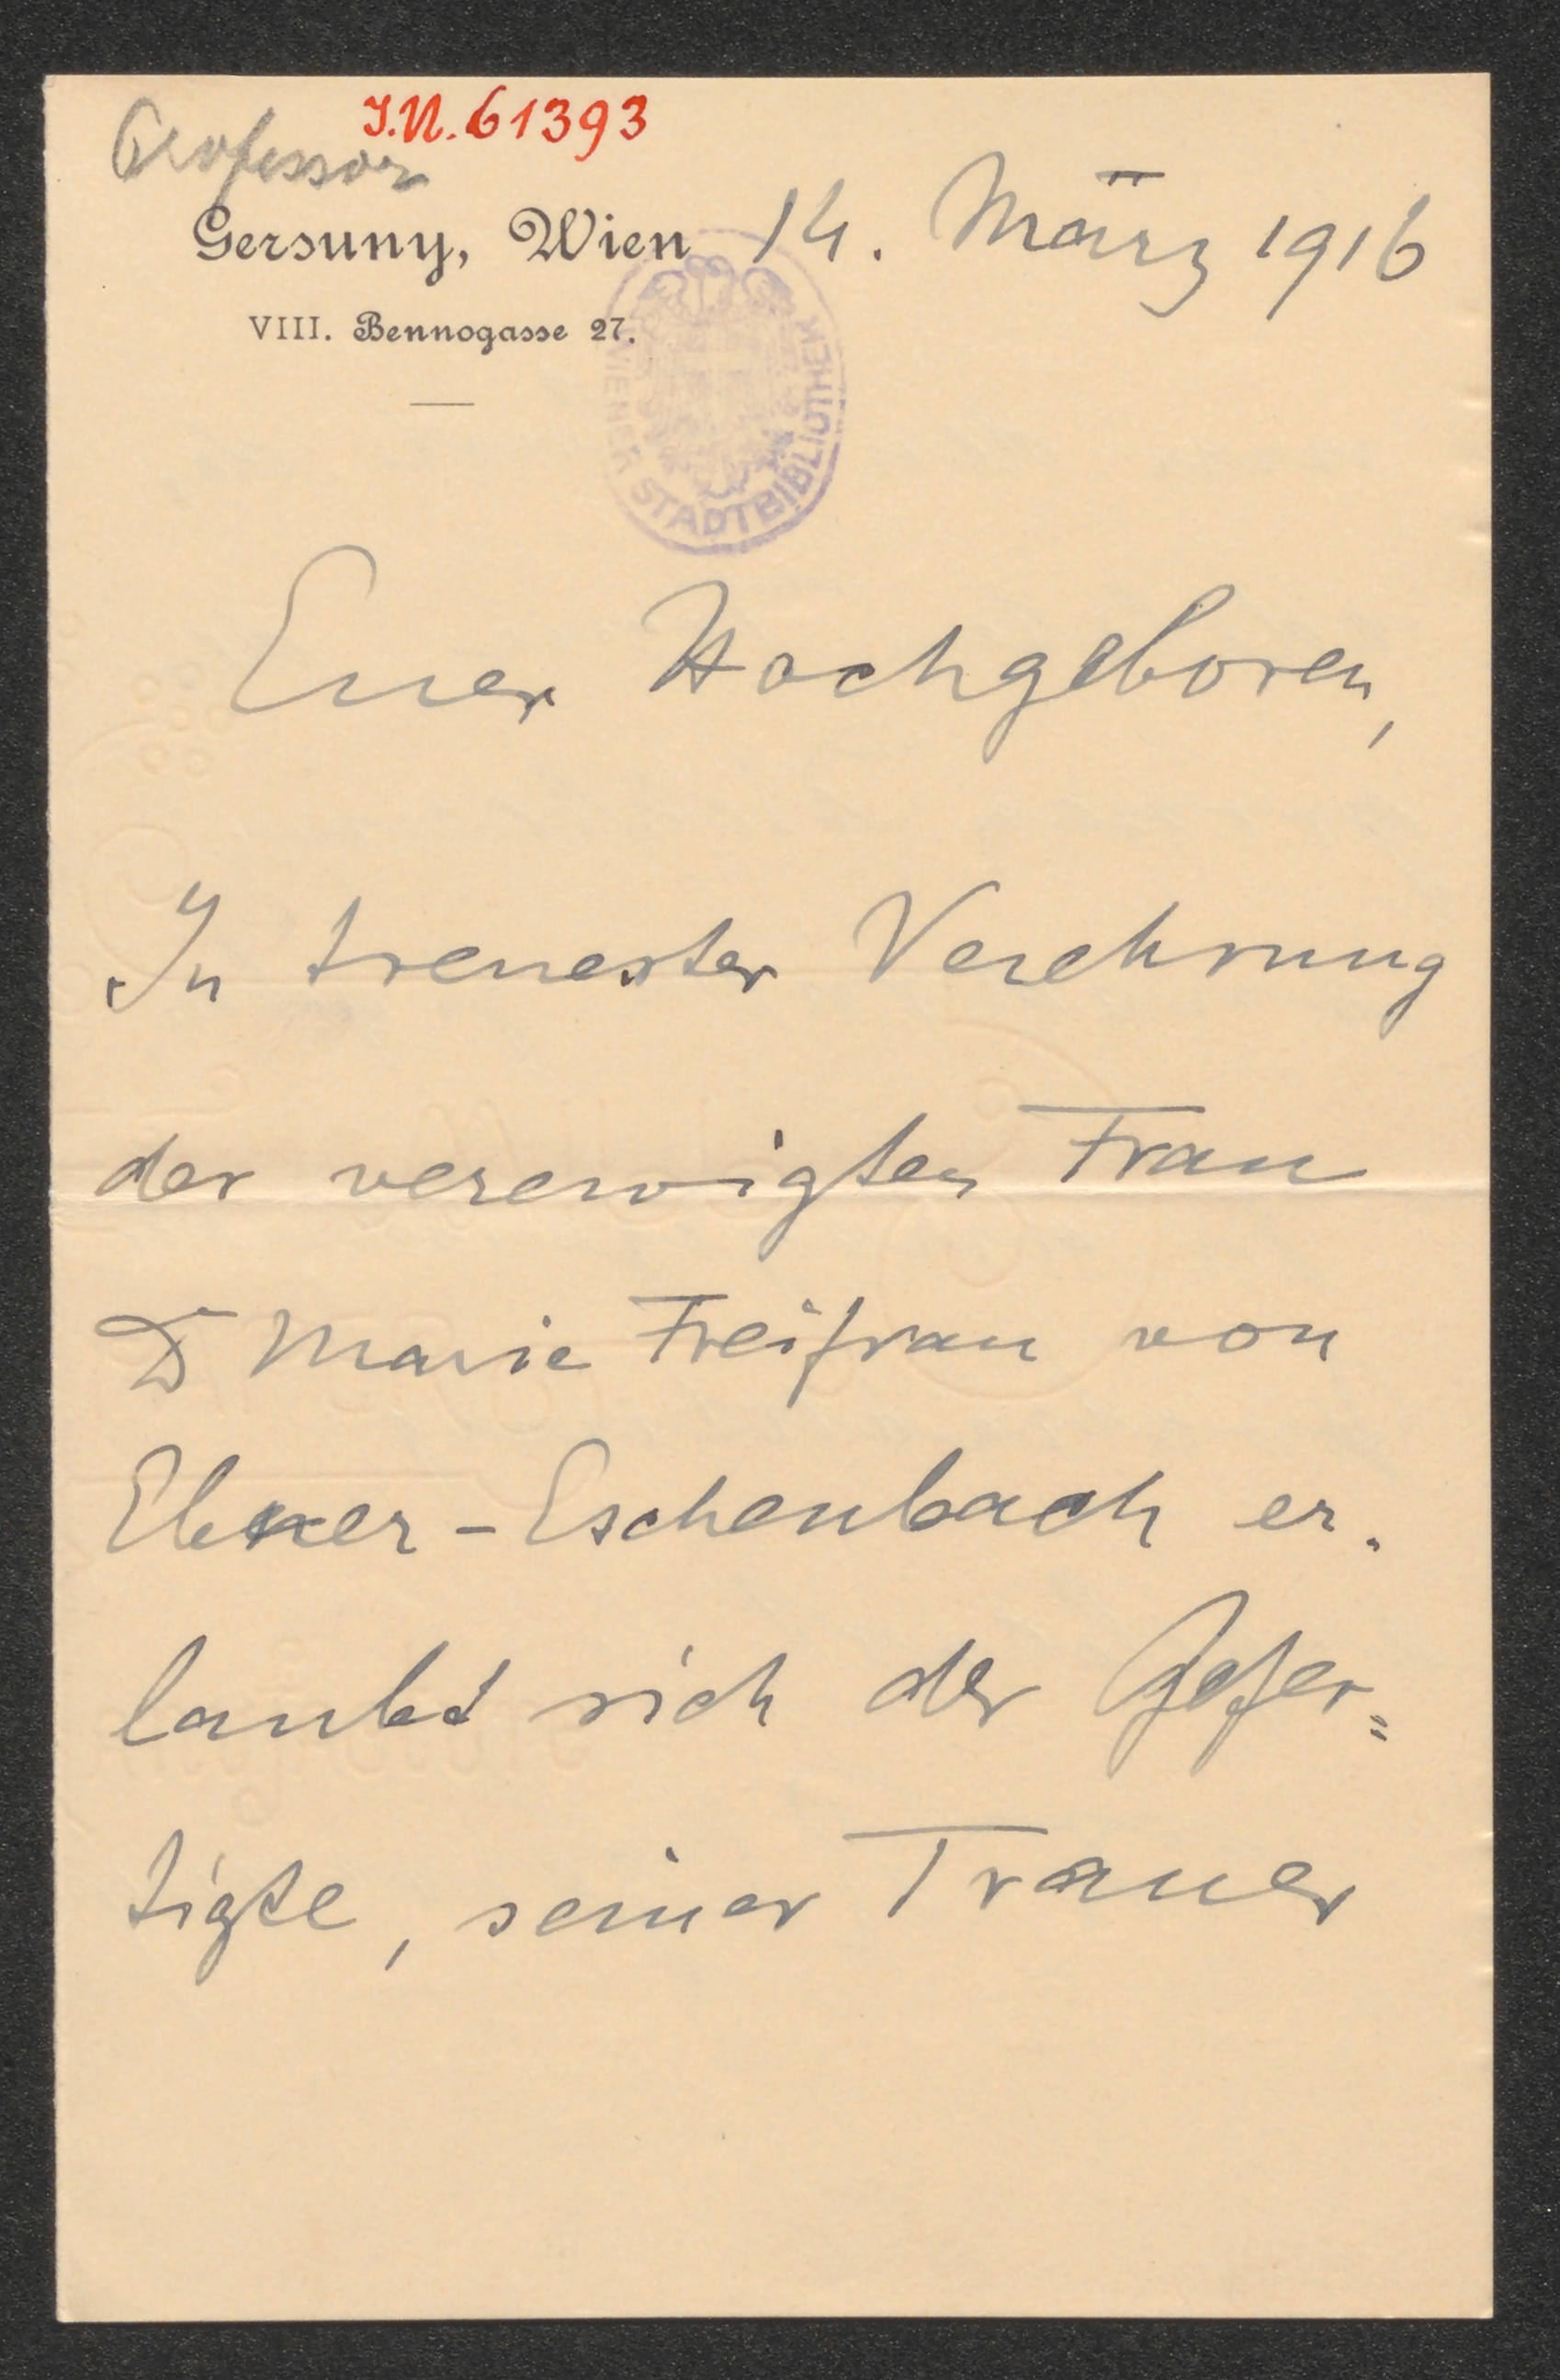 J.N. 61393
Professor
Gersuny, Wien 14. März 1916
VIII. Bennogasse 27.
WIENER STADTBIBLIOTHEK
Euer Hochgeboren,
In treuester Verehrung
der verewigten Frau
Dr Marie Freifrau von
Ebner-Eschenbach er-
laubt sich der Gefer=
tigte, seiner Trauer